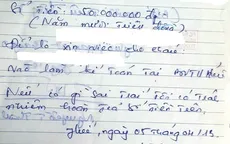 Số tiền: 50.000.000 đ
(Năm mươi triệu đồng)
Để lo xin việc cho cháu
vào làm kế toán tại
Nếu có gì sai trái tôi có trách
nhiệm hoàn trả số tiền trên.
Huế, ngày 05 tháng 04 13.